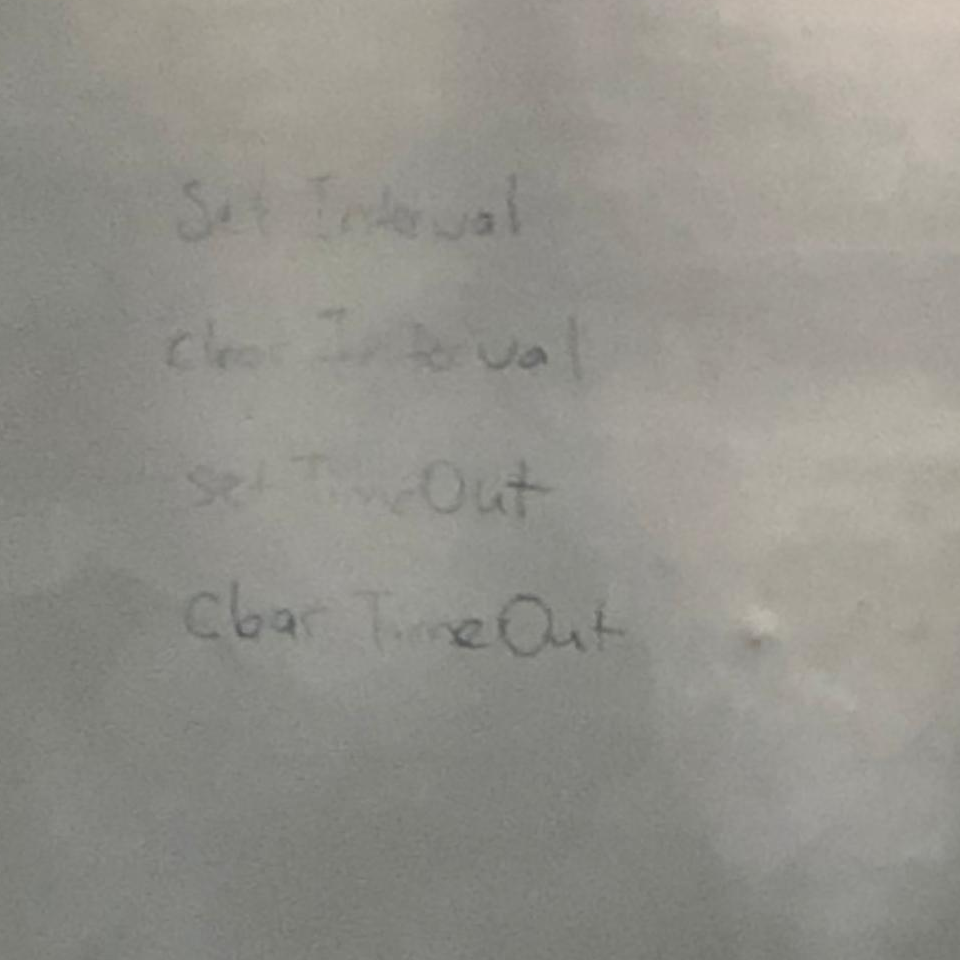 Set Interval
clear Interval
set TimeOut
Clear TimeOut